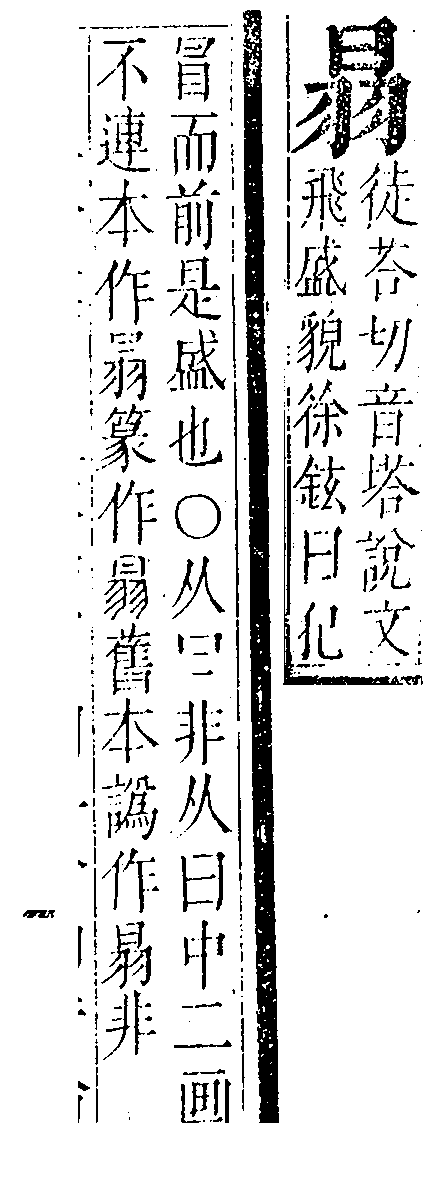 𦐇
徒荅切音塔說文
飛盛貌徐鉉曰犯
冒而前是盛也○从冃非从曰中二画
不連本作𦐇篆作舊本譌作非